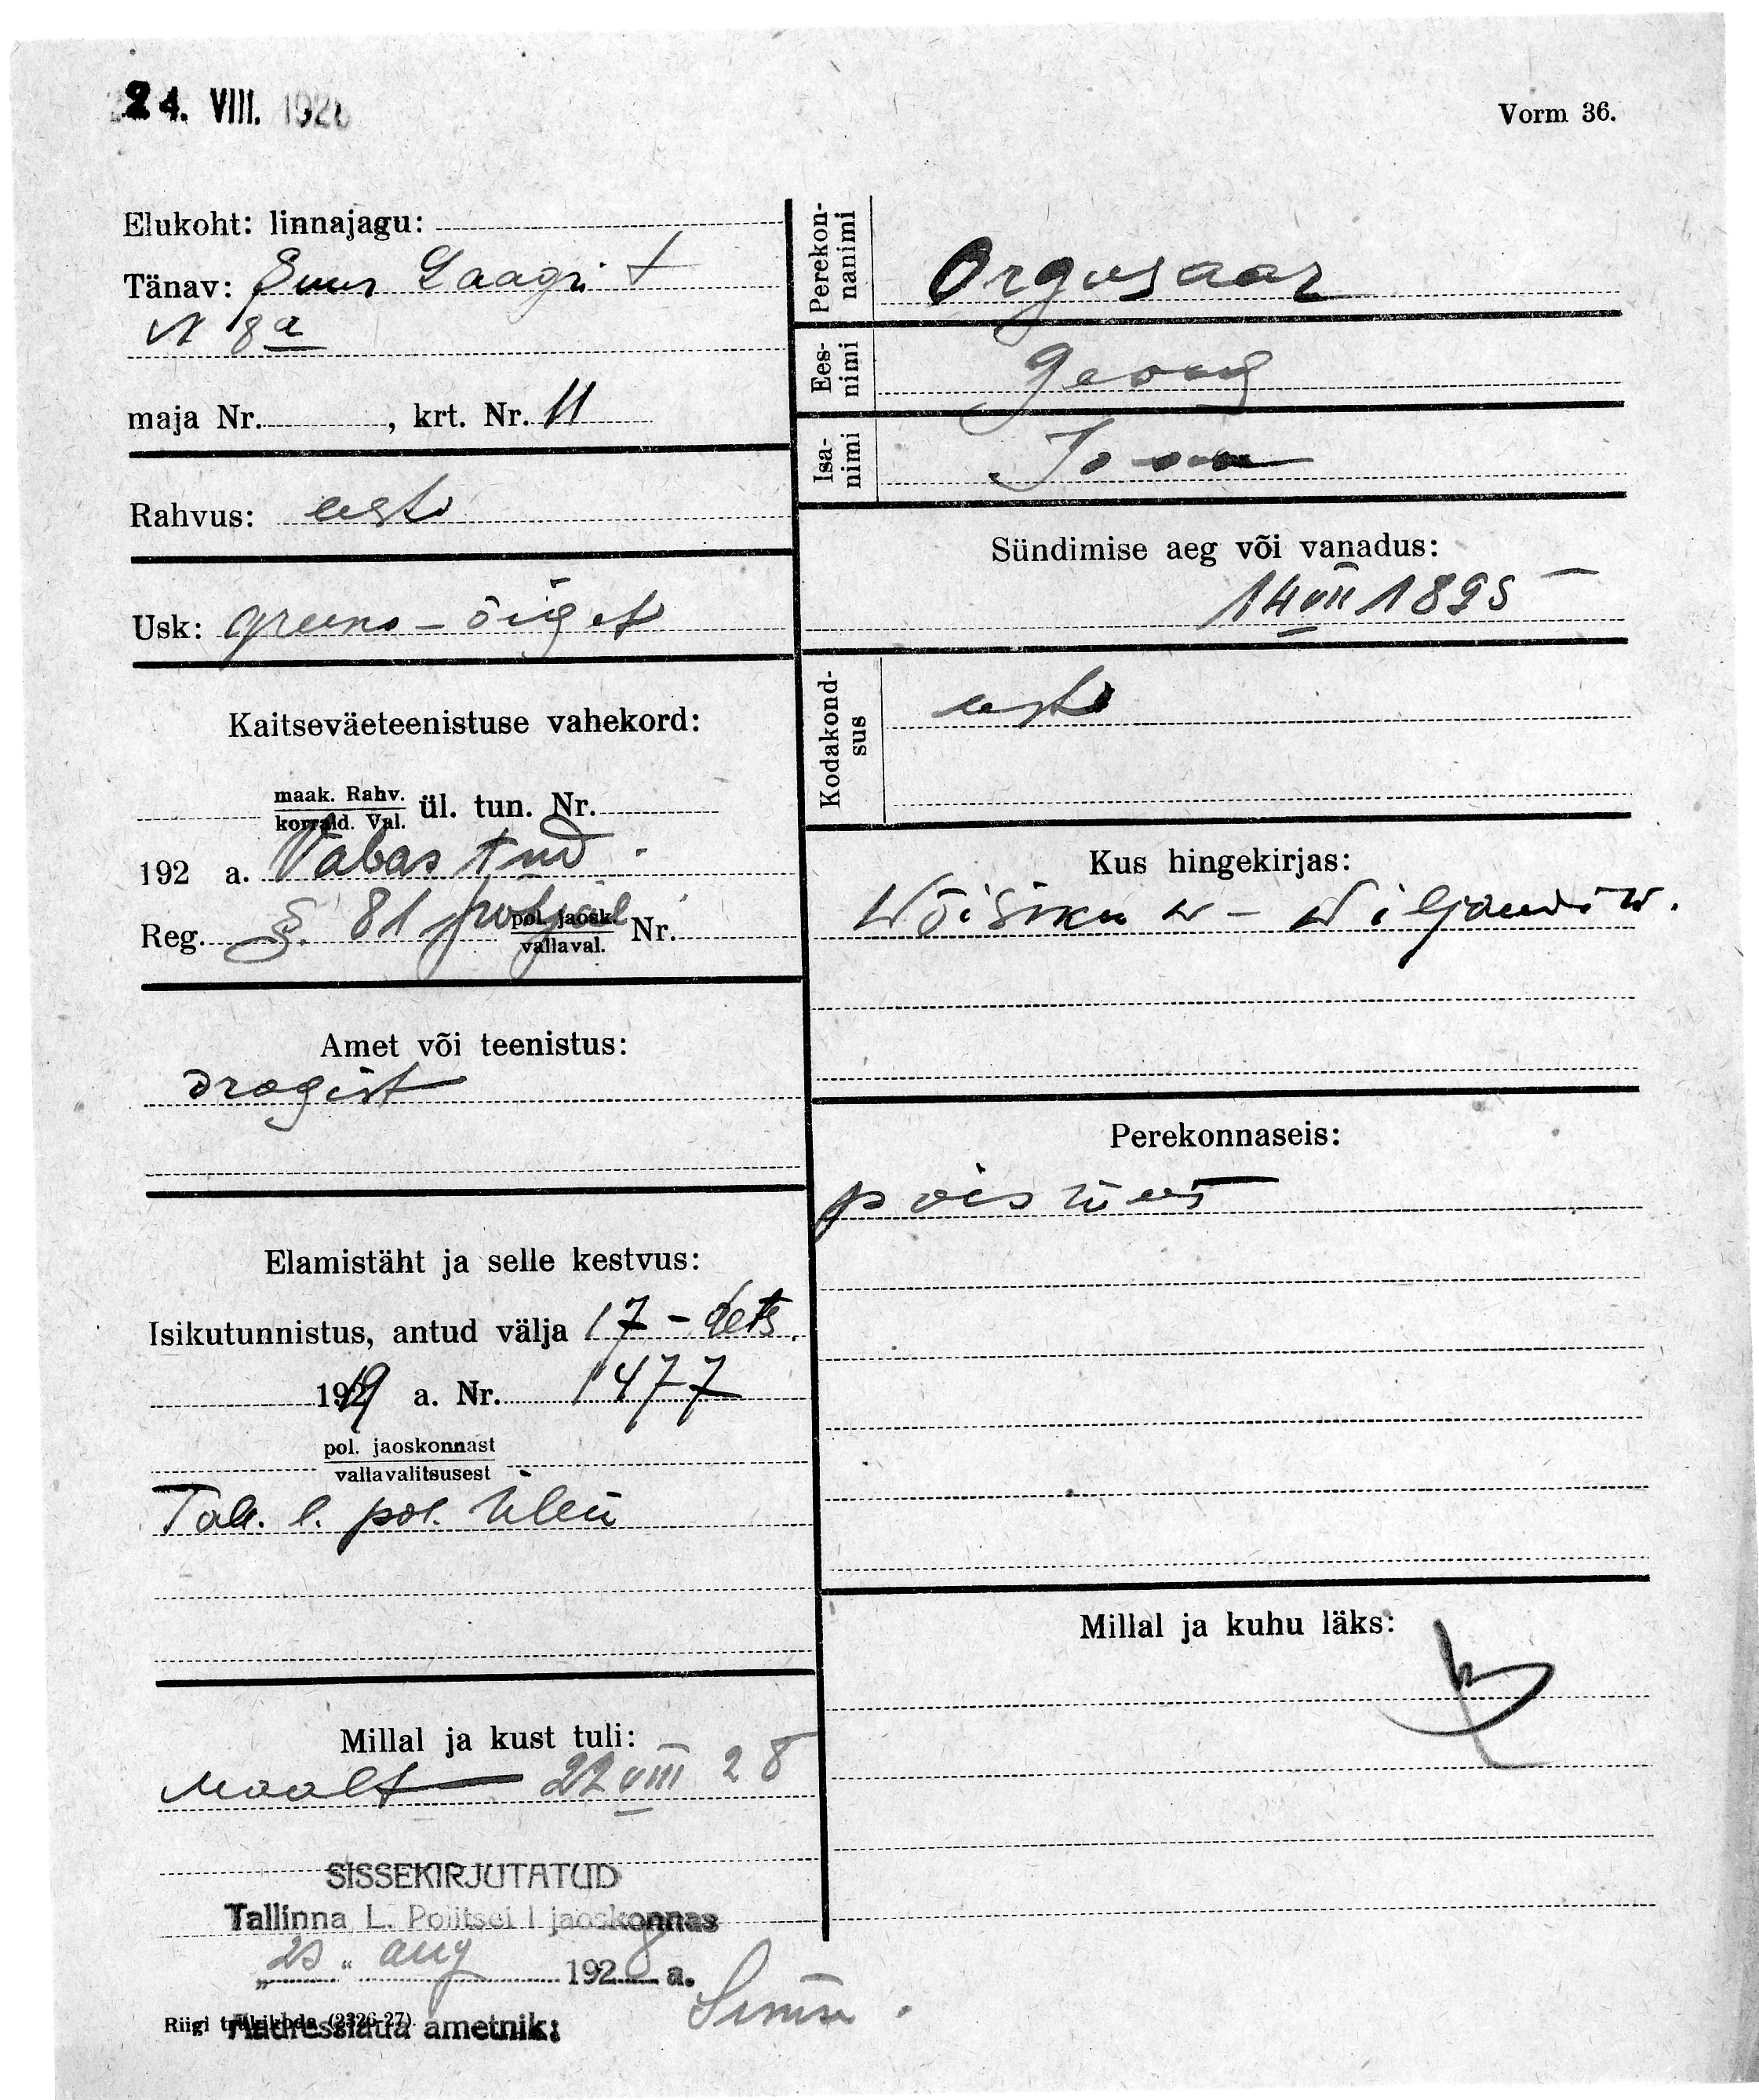 24. VIII. 1928
Vorm 36.
Elukoht: linnajagu:
Tänav: Suur Laagri t
N 8a
maja Nr. , krt. Nr. 11
Rahvus: eesti
Usk: greeka-õiget
Kaitseväeteenistuse vahekord:
maak. Rahv.
korrald. Val. ül. tun. Nr.
192 a. Vabastud.
Reg. §. 81 põhjal pol. jaosk. Nr.
vallaval.
Amet või teenistus:
drogist
Elamistäht ja selle kestvus:
Isikutunnistus, antud välja 17 - dets.
1919 a. Nr. 1477
pol. jaoskonnast
vallavalitsusest
Tall. l. pol. ülem
Millal ja kust tuli:
Maalt 22 VIII 28
SISSEKIRJUTATUD
Tallinna L. Politsei I jaoskonnas
„23“ aug 1928 a.
Riigi trükikoda (2326-27).
Aadresslaua ametnik:
Perekon-
nanimi
Orgusaar
Ees-
nimi
Georg
Isa-
nimi
Sündimise aeg või vanadus:
14 VII 1895
Kodakond-
sus
eesti
Kus hingekirjas:
Wõisiku w - Wiljandi w.
Perekonnaseis:
poismees
Millal ja kuhu läks: